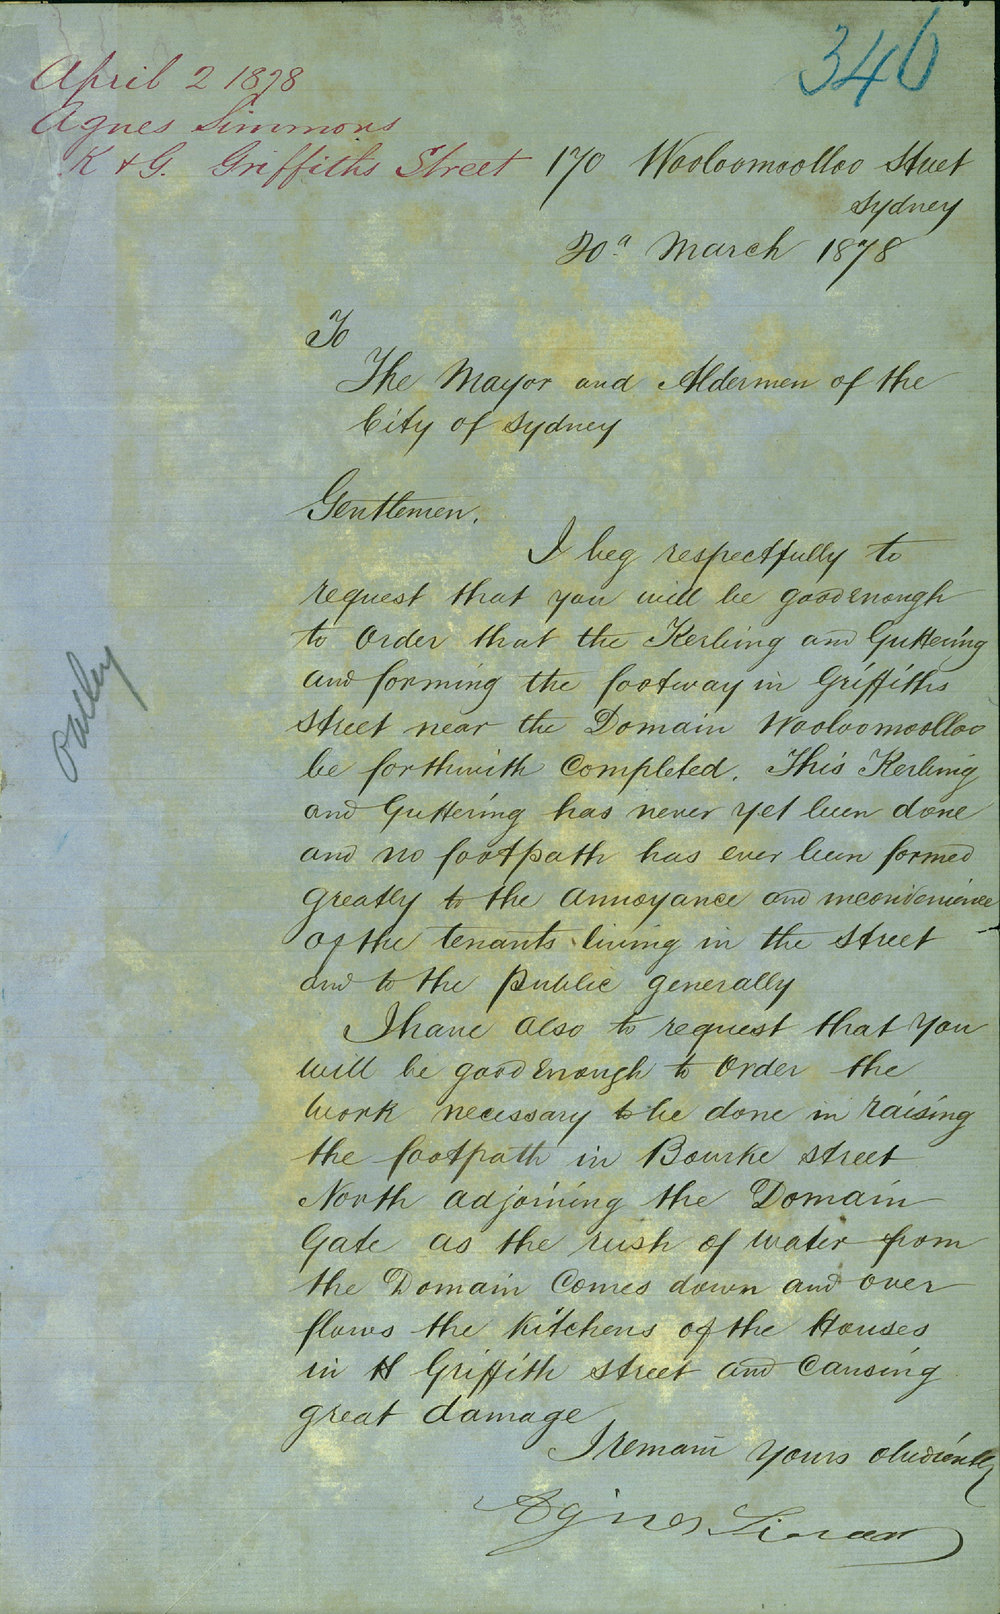 346
April 2 1878
Agnes Simmons
K & G. Griffiths Street
170 Wooloomoolloo Street
Sydney
30th March 1878
To
The Mayor and Aldermen of the
City of Sydney
Gentlemen.
I beg respectfully to
request that you will be good enough
to Order that the Kerbing and Guttering
and forming the footway in Griffiths
street near the Domain Wooloomoolloo
be forthwith Completed. This Kerbing
and Guttering has never yet been done
and no footpath has ever been formed
greatly to the annoyance and inconvenience
of the tenants living in the street
and to the public generally
I have also to request that you
will be good enough to Order the
work necessary to be done in raising
the footpath in Bourke street
North adjoining the Domain
Gate as the rush of water from
the Domain Comes down and over
flows the Kitchens of the Houses
in Griffith street and Causing
great damage
I remain yours obediently
Agnes Simmons
Oatley